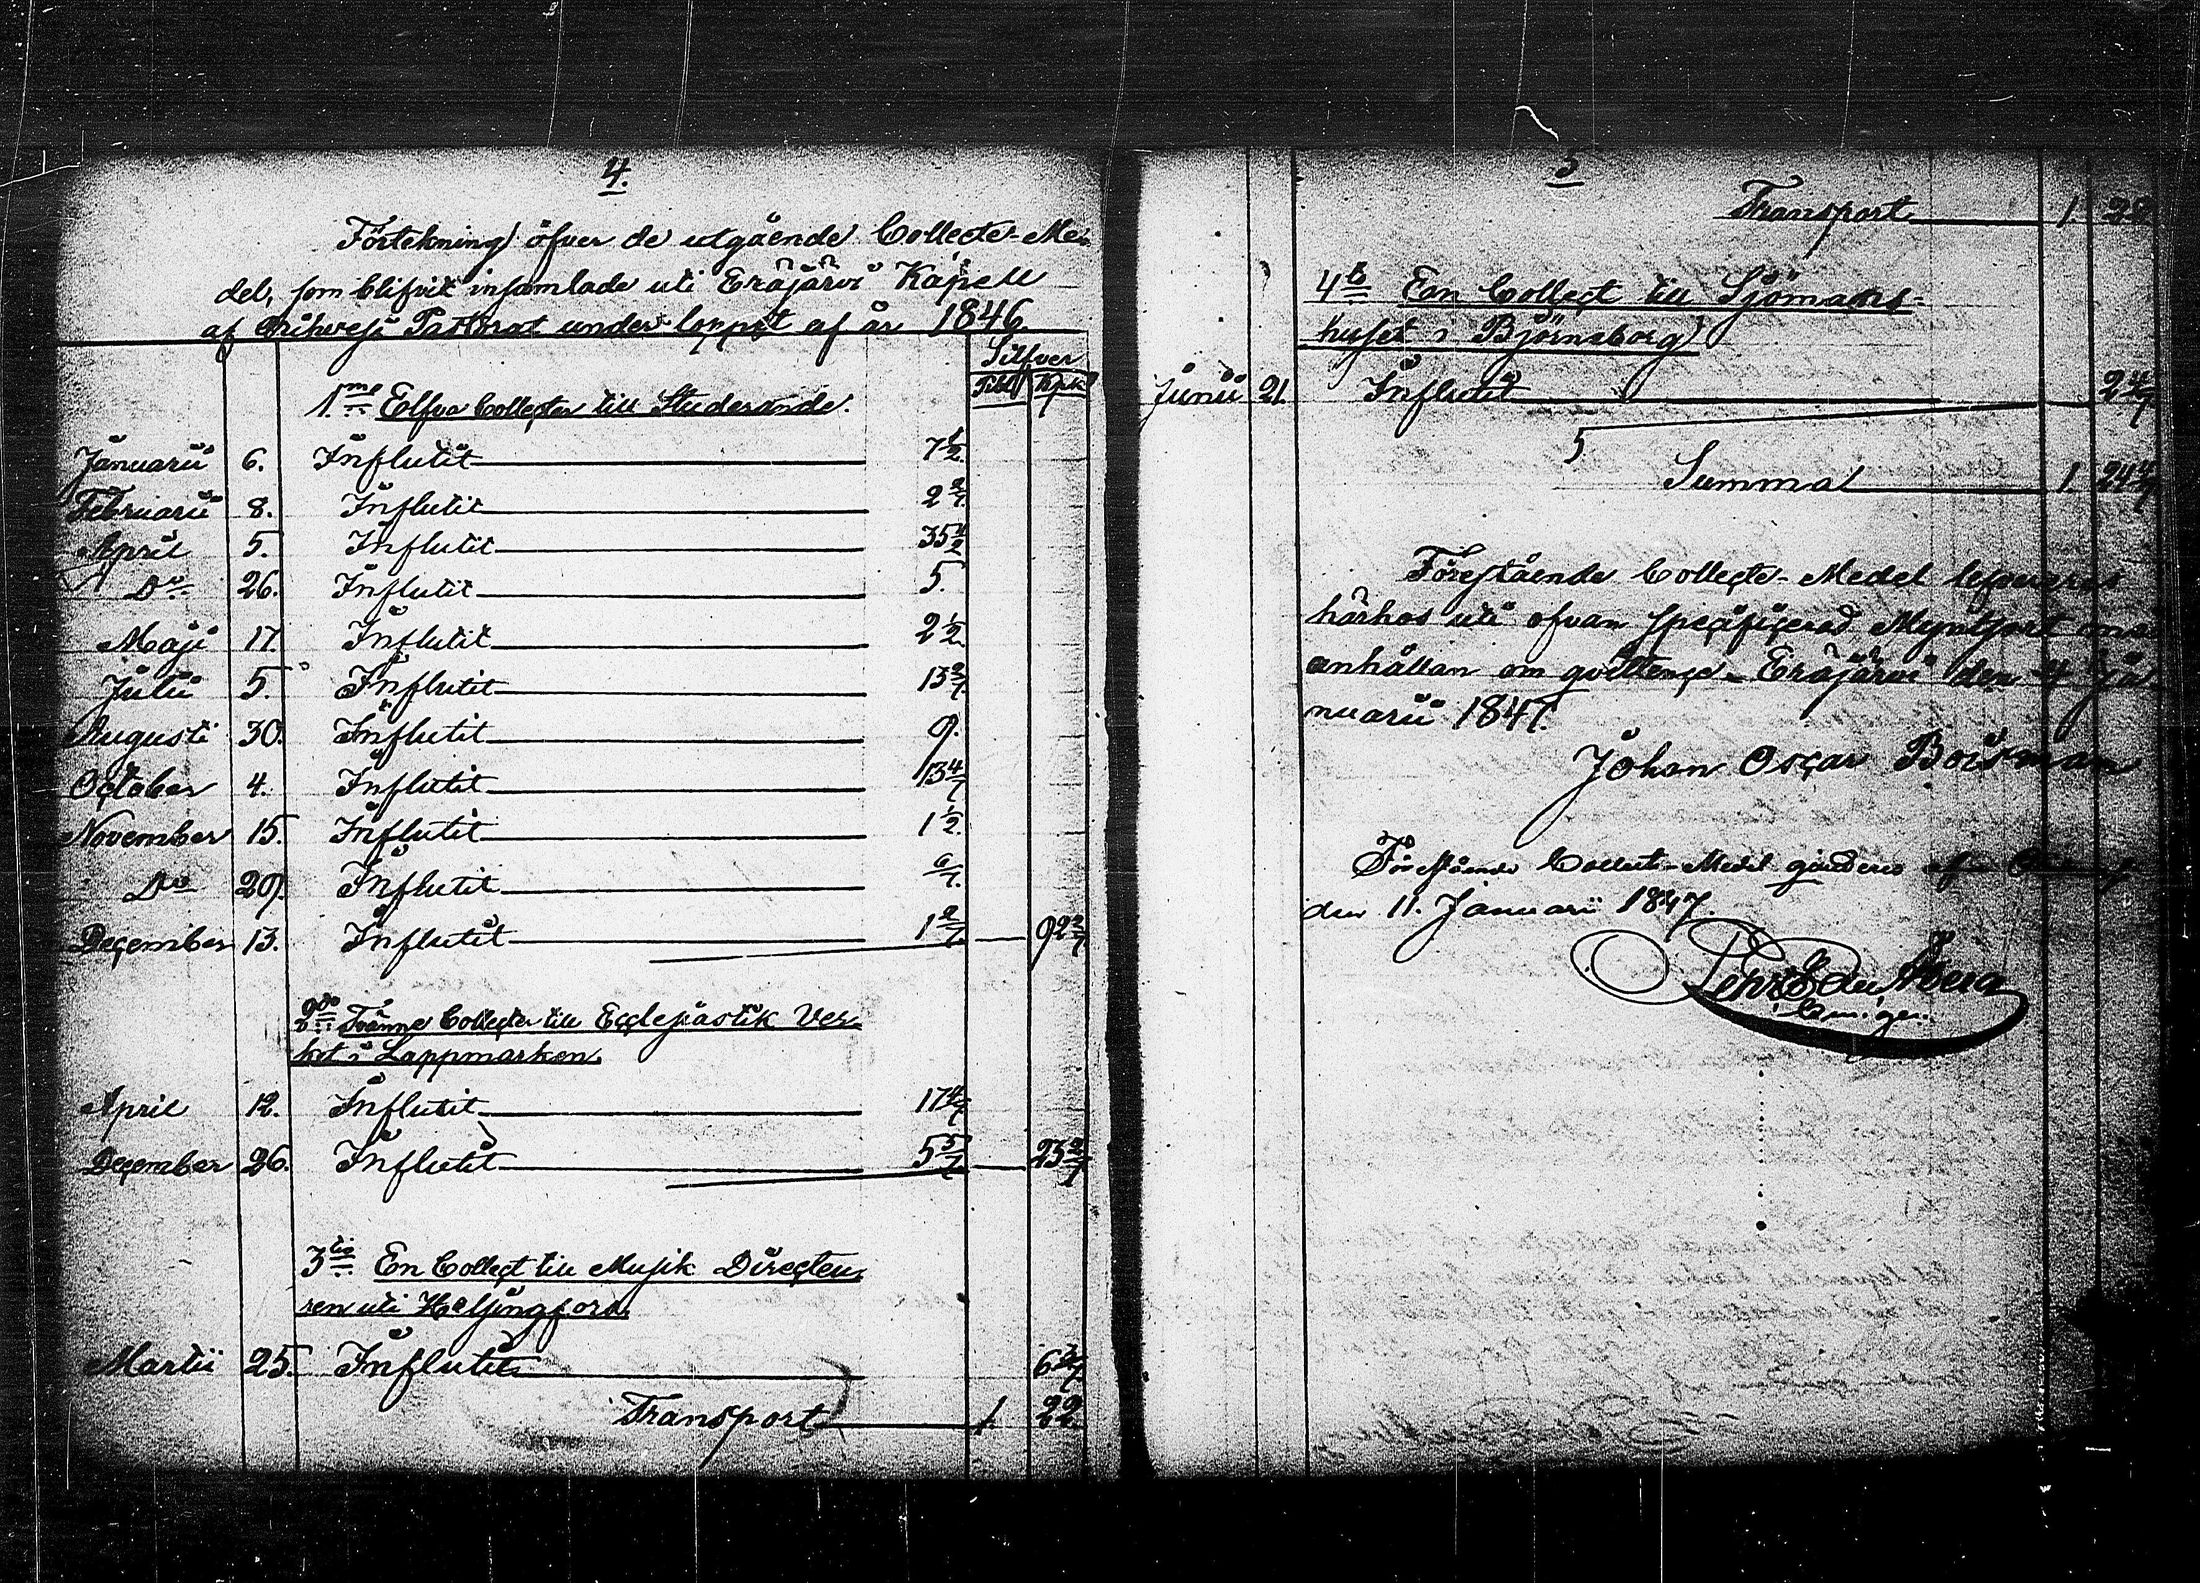 4.
Förtekning öfver de utgående Collecte-Me-
del, som blifvit insamlade uti Eräjärvi Kapell
af Orihvesi Pastorat under loppet af år 1846.
Silfver
Rbl Kpk
1mo Elfva Collecter till Studerande.
Januarii 6. Influtit 7 1/2.
Februarii 8. Influtit 2 2/7.
April 5. Influtit 35
Do 26. Influtit 5.
Maji 17. Influtit 2 1/2
Julii 5. Influtit 13 2/7.
Augusti 30. Influtit 9.
October 4. Influtit 13 4/7
November 15. Influtit 1 1/2.
Do 29. Influtit 6/7.
December 13. Influtit 1 2/7. — 92 2/7
2do Tvänne Collecter till Ecclesiastik Ver-
ket i Lappmarken.
April 12. Influtit 17 4/7
December 26. Influtit 5 5/7 — 23 2/7
3tio En Collect till Musik Directeu-
ren uti Helsingfors.
Martii 25. Influtit 6 3/7
Transport 1. 22
5
Transport 1. 22
4to En Collect till Sjömans-
huset i Björneborg
Junii 21. Influtit 2 4/7
Summa 1. 24 4/7
Förestående Collecte-Medel lefvereras
härhos uti ofvan specificerad Myntsort
anhållan om qvittence. Eräjärvi den 4 Ja-
nuarii 1847.
Johan Oscar Boisman
Förestående Collect-Medel
den 11. Januarii 1847.